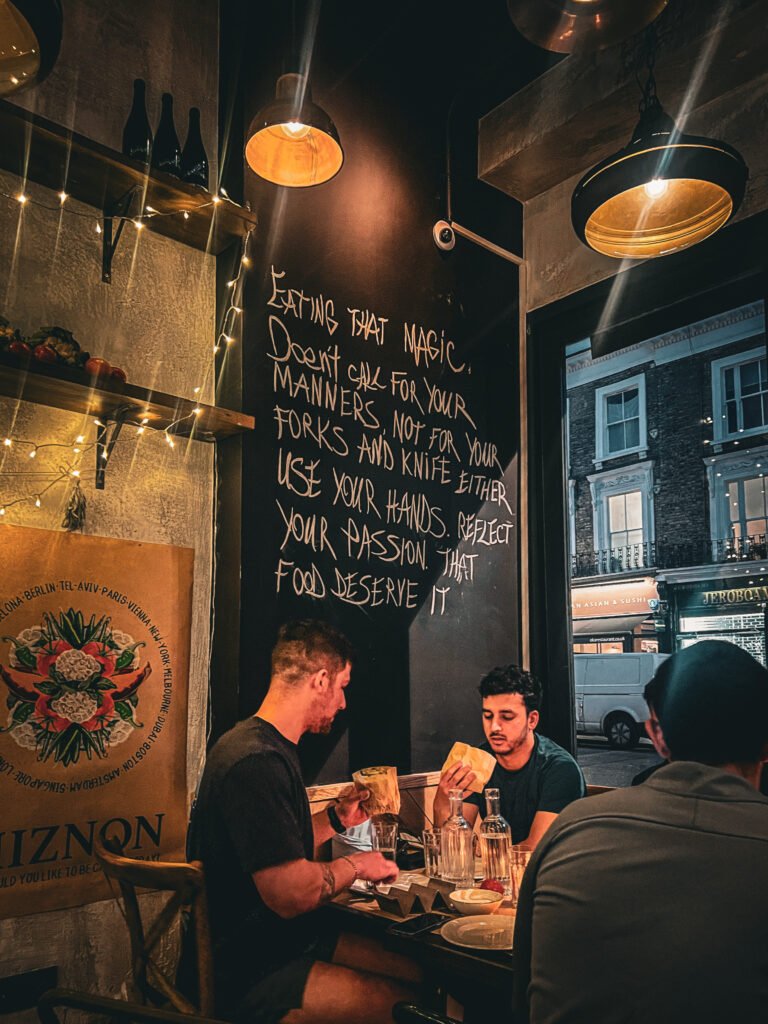 EATING THAT MAGIC.
Doesn't CALL FOR YOUR
MANNERS, NOT FOR YOUR
FORKS AND KNIFE EITHER
USE YOUR HANDS. REFLECT
YOUR PASSION. THAT
FOOD DESERVE IT
LONA·BERLIN·TEL-AVIV·PARIS·VIENNA·NEW-YORK·MELBOURNE·DUBAI·BOSTON·AMSTERDAM·SINGAPORE·LON
MIZNON
LD YOU LIKE TO BE
AN ASIAN & SUSHI
JEROBOAM